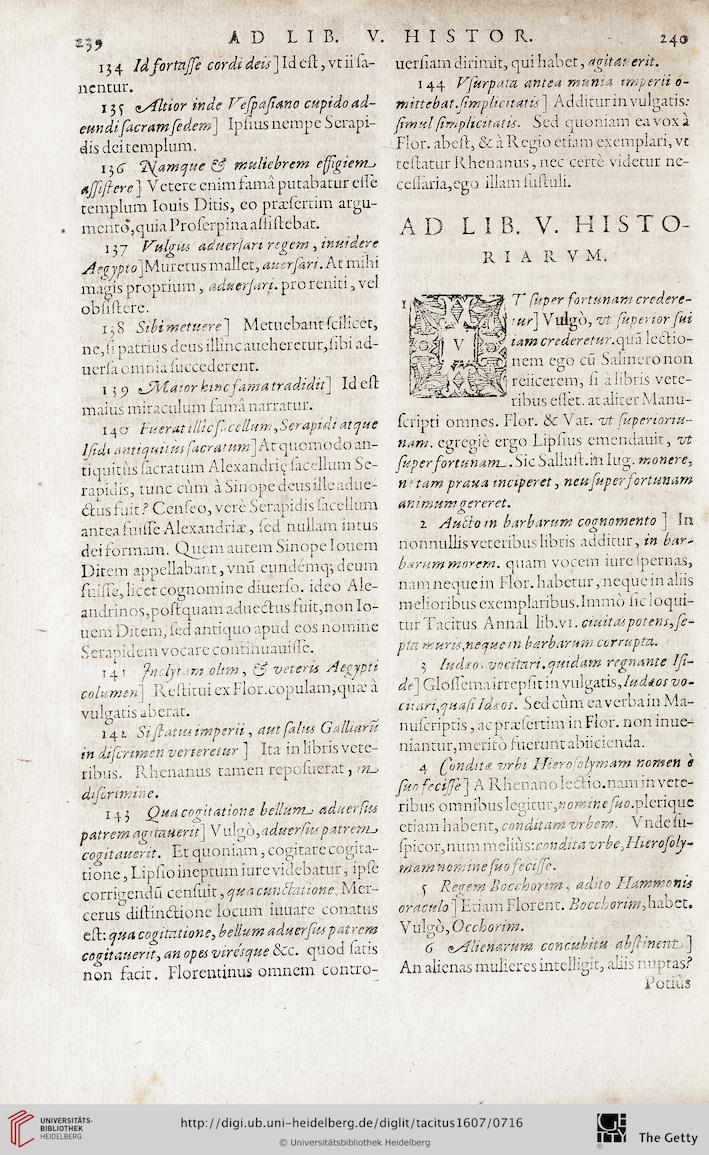 239 AD LIB. V. HISTOR. 240
134 Id fortaſſe cordi deis] Id eſt, vt ii ſa-
nentur.
135 Altior inde Veſpaſiano cupido ad-
eundi ſacram ſedem] Ipſius nempe Serapi-
dis dei templum.
136 Namque & muliebrem effigiem
aſſiſtere] Vetere enim famâ putabatur eſſe
templum Iouis Ditis, eo præſertim argu-
mento, quia Proſerpina aſſiſtebat.
137 Vulgus aduerſari regem, inuidere
Aegypto] Muretus mallet, auerſari. At mihi
magis proprium, aduerſari. pro reniti, vel
obſiſtere.
138 Sibi metuere] Metuebant ſcilicet,
ne, ſi patrius deus illinc aueheretur, ſibi ad-
uerſa omnia ſuccederent.
139 Maior hinc fama tradidit] Id eſt
maius miraculum famâ narratur.
140 Fuerat illic ſacellum, Serapidi atque
Iſidi antiquitus ſacratum] At quomodo an-
tiquitùs ſacratum Alexandrię ſacellum Se-
rapidis, tunc cùm à Sinope deus ille adue-
ctus fuit? Cenſeo, verè Serapidis ſacellum
antea fuiſſe Alexandriæ, ſed nullam intus
dei formam. Quem autem Sinope Iouem
Ditem appellabant, vnũ eundémq; deum
fuiſſe, licet cognomine diuerſo. ideo Ale-
andrinos, poſtquam aduectus fuit, non Io-
uem Ditem, ſed antiquo apud eos nomine
Serapidem vocare continuauiſſe.
141 Inclytam olim, & veteris Aegypti
columen] Reſtitui ex Flor. copulam, quæ à
vulgatis aberat.
142 Si ſtatus imperii, aut ſalus Galliarũ
in diſcrimen verteretur] Ita in libris vete-
ribus. Rhenanus tamen repoſuerat, in
diſcrimine.
143 Qua cogitatione bellum aduerſus
patrem agitauerit] Vulgò, aduerſus patrem
cogitauerit. Et quoniam, cogitare cogita-
tione, Lipſio ineptum iure videbatur, ipſe
corrigendũ cenſuit, qua cunctatione. Mer-
cerus diſtinctione locum iuuare conatus
eſt: qua cogitatione, bellum aduerſus patrem
cogitauerit, an opes virésque &c. quod ſatis
non facit. Florentinus omnem contro-
uerſiam dirimit, qui habet, agitauerit.
144 Vſurpata antea munia imperii o-
mittebat. ſimplicitatis] Additur in vulgatis:
ſimul ſimplicitatis. Sed quoniam ea vox à
Flor. abeſt, & à Regio etiam exemplari, vt
teſtatur Rhenanus, nec certè videtur ne-
ceſſaria, ego illam ſuſtuli.
AD LIB. V. HISTO-
RIARVM.
1 VT ſuper fortunam credere-
tur] Vulgò, vt ſuperior ſui
iam crederetur. quã lectio-
nem ego cũ Salinero non
reiicerem, ſi à libris vete-
ribus eſſet. at aliter Manu-
ſcripti omnes. Flor. & Vat. vt ſuperioriu-
nam. egregiè ergo Lipſius emendauit, vt
ſuper fortunam. Sic Salluſt. in Iug. monere,
ne tam praua inciperet, neu ſuper fortunam
animum gereret.
2 Aucto in barbarum cognomento] In
nonnullis veteribus libris additur, in bar-
barum morem. quam vocem iure ſpernas,
nam neque in Flor. habetur, neque in aliis
melioribus exemplaribus. Immò ſic loqui-
tur Tacitus Annal lib. VI. ciuitas potens, ſe-
pta muris, neque in barbarum corrupta.
3 Iudæos vocitari. quidam regnante Iſi-
de] Gloſſema irrepſit in vulgatis, Iudæos vo-
citari, quaſi Idæos. Sed cùm ea verba in Ma-
nuſcriptis, ac præſertim in Flor. non inue-
niantur, meritò fuerunt abiicienda.
4 Conditæ vrbi Hieroſolymam nomen è
ſuo feciſſe] A Rhenano lectio. nam in vete-
ribus omnibus legitur, nomine ſuo. plerique
etiam habent, conditam vrbem. Vnde ſu-
ſpicor, num meliùs: condita vrbe, Hieroſoly-
mam nomine ſuo feciſſe.
5 Regem Bocchorim, adito Hammonis
oraculo] Etiam Florent. Bocchorim, habet.
Vulgò, Occhorim.
6 Alienarum concubitu abſtinent]
An alienas mulieres intelligit, aliis nuptas?
Potiùs
UNIVERSITÄTS-
BIBLIOTHEK
HEIDELBERG
http://digi.ub.uni-heidelberg.de/diglit/tacitus1607/0716
© Universitätsbibliothek Heidelberg
The Getty